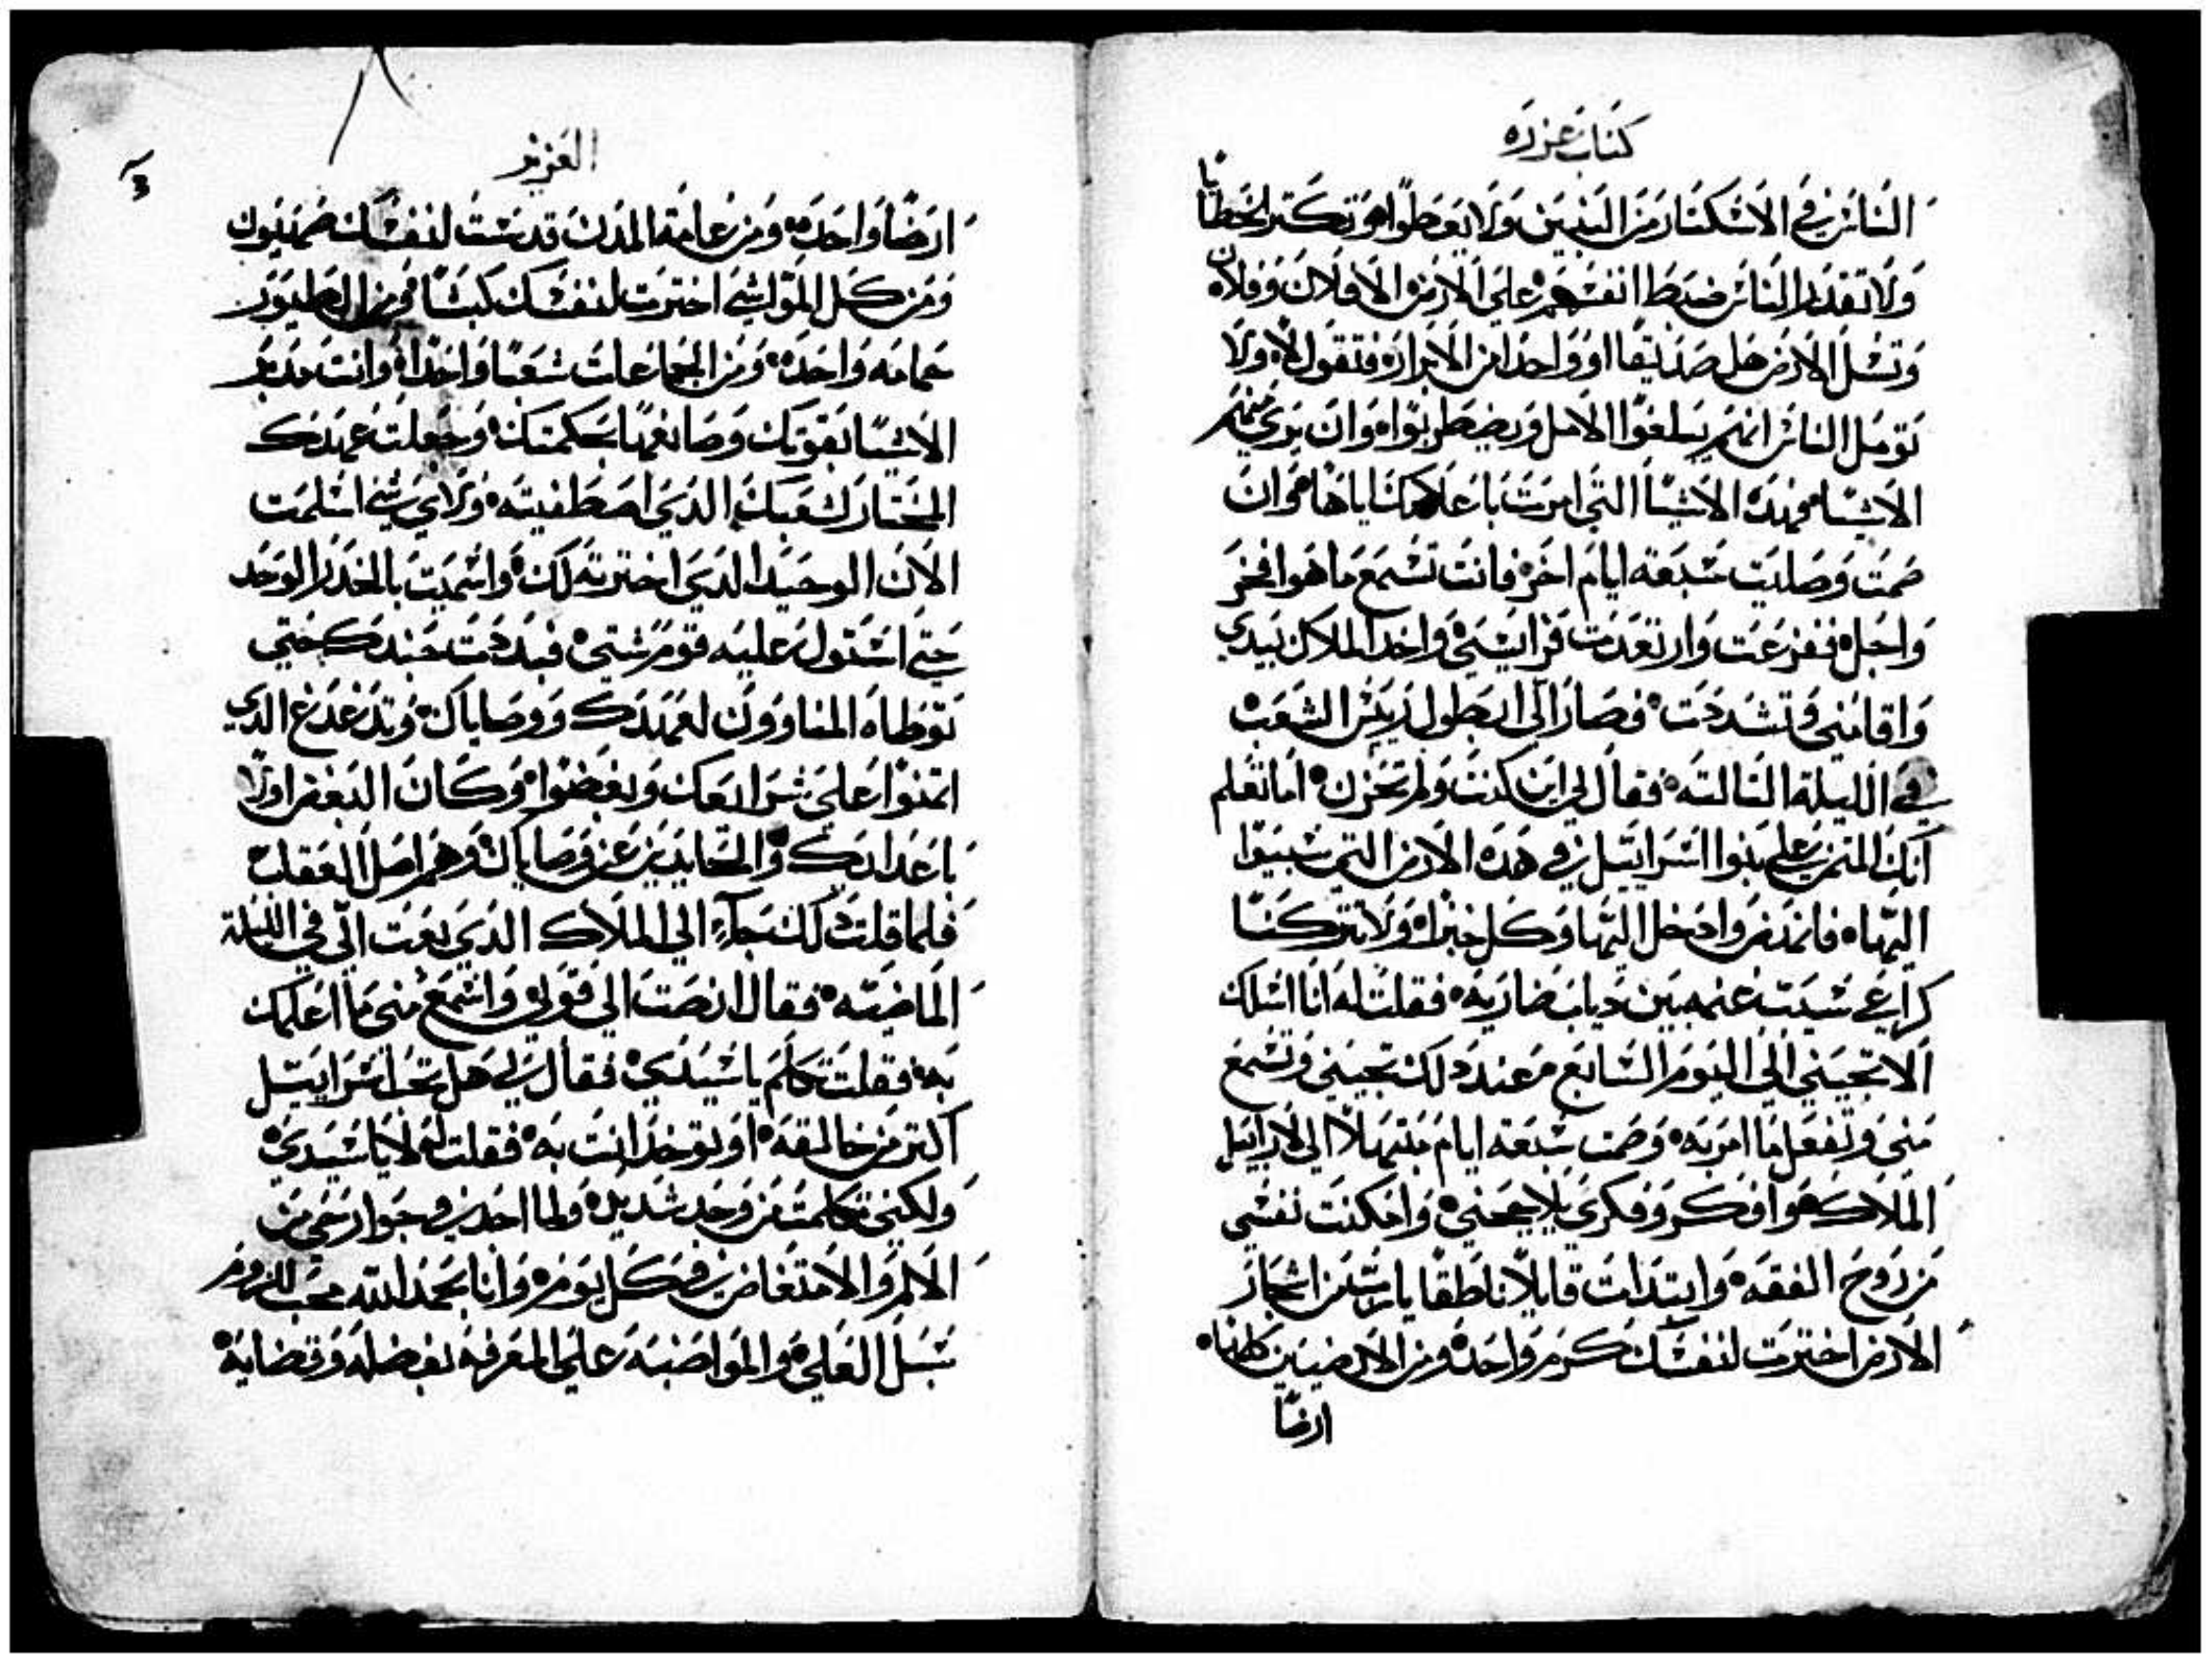 كتاب عزره
الناس في الاستكثار من البنين ولا يعطوا وتكتر الخطايا
ولا تقدر الناس ضبط انفسهم على الارض الا فلان وفلان
وتسل الارض هل صديقا او واحدا من الابرار فتقول لا ولا
تومل الناس انهم يبلغوا الامل ويضطربوا وان يري منهم
الاشيا فهده الاشيا التي امرت باعلامك اياها وان
صمت وصليت سبعة ايام اخر فانت تسمع ما هو افخر
واجل ففزعت وارتعدت فرايسي واخد الملاك بيدي
واقامني وتشددت فصار الي ابطول ريس الشعب
في الليلة التالته فقال لي اين كنت ولم تحزن اما تعلم
انك المتمن علي بنوا اسراييل في هده الارض التي سبيوا
اليها فانهض وادخل اليها وكل خبزا ولا تتركنا
كراعي سيب غنمه بين دياب ضاريه فقلت له انا اسلك
الا تجيني الي اليوم السابع وعند دلك تجيني وتسمع
مني وتفعل ما امر به وصمت سبعة ايام مبتهلا الي لاراييل
الملاك هوا وفكر وفكري يلاججني وامكنت نفسي
من روح الفقه وابتدات قايلا ناطقا يارب من اشجار
الارض اخترت لنفسك كرم واحده ومن الارضيين كلها
ارضا
العزيز
ارضا واحده ومن عامة المدن قدست لنفسك صهيون
ومن كل المواشي اخترت لنفسك كبشا ومن الطيور
حمامه واحده ومن الجماعات شعبا واحدا وانت مدبر
الاشيا بقوتك وصانعها بحكمتك وجعلت عهدك
المختار لشعبك الدي اصطفيته ولاي شي اسلمت
الان الوحيد الدي اخترته لك واسميت بالخدر الوحد
حتي استولي عليه قوم شتي فبددت جندك حتي
توطاه المناوون لعهدك ووصاياك وتدغدغ الدي
اتمنوا علي شرايعك وبغضوا وكان البغض اولا
باعدايك والحايدين عن وصاياك وهم اصل العقاب
فلما قلت دلك جاء الي الملاك الدي بعت الي في الليلة
الماضيه فقال انصت الي قولي واسمع مني ما اعلمك
به فقلت تكلم يا سيدي فقال لي هل تحب اسراييل
اكتر من خالقه او يوخد انت به فقلت له لا يا سيدي
ولكني تكلمت من وجد شديد ولما اجد في جوارحي من
الالم والامتعاض في كل يوم وانا بحمد الله محب للزوم
سبل العلي والمواضبه علي المعرفه بفضله وقضايه